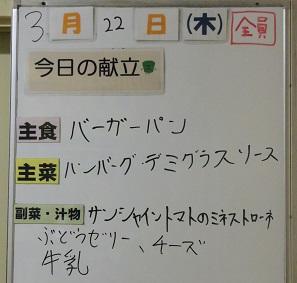 3月22日(木) 全員
今日の献立
主食 バーガーパン
主菜 ハンバーグ・デミグラスソース
副菜・汁物 サンシャイントマトのミネストローネ
ぶどうゼリー、チーズ
牛乳